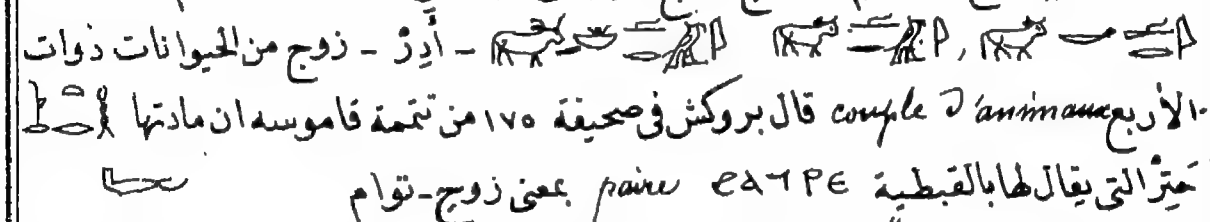 - أَدِرْ - زوج من الحيوانات ذوات
الأربع couple d'animaux قال بروكش فى صحيفة ١٧٥ من تتمة قاموسه ان مادتها
حَتِرْ التى يقال لها بالقبطية ϩⲁⲧⲣⲉ paire بمعنى زوج - توام